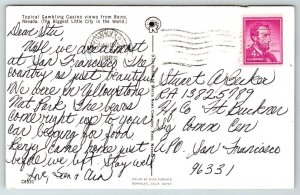 Typical Gambling Casino views from Reno,
Nevada. (The Biggest Little City in the World)
Dear Stu
Well we are almost
at San Francisco. The
country is just beautiful
We were in Yellowstone
Nat Park. The bears
come right up to your
car begging for food
came home just
before we left. Stay well
Love,
Stuart A Becker
RA 13825789
Ft Buckner
Sig Comm Cen
APO. San Francisco
96331
4¢
COLOR BY MIKE ROBERTS
BERKELEY, CALIF.